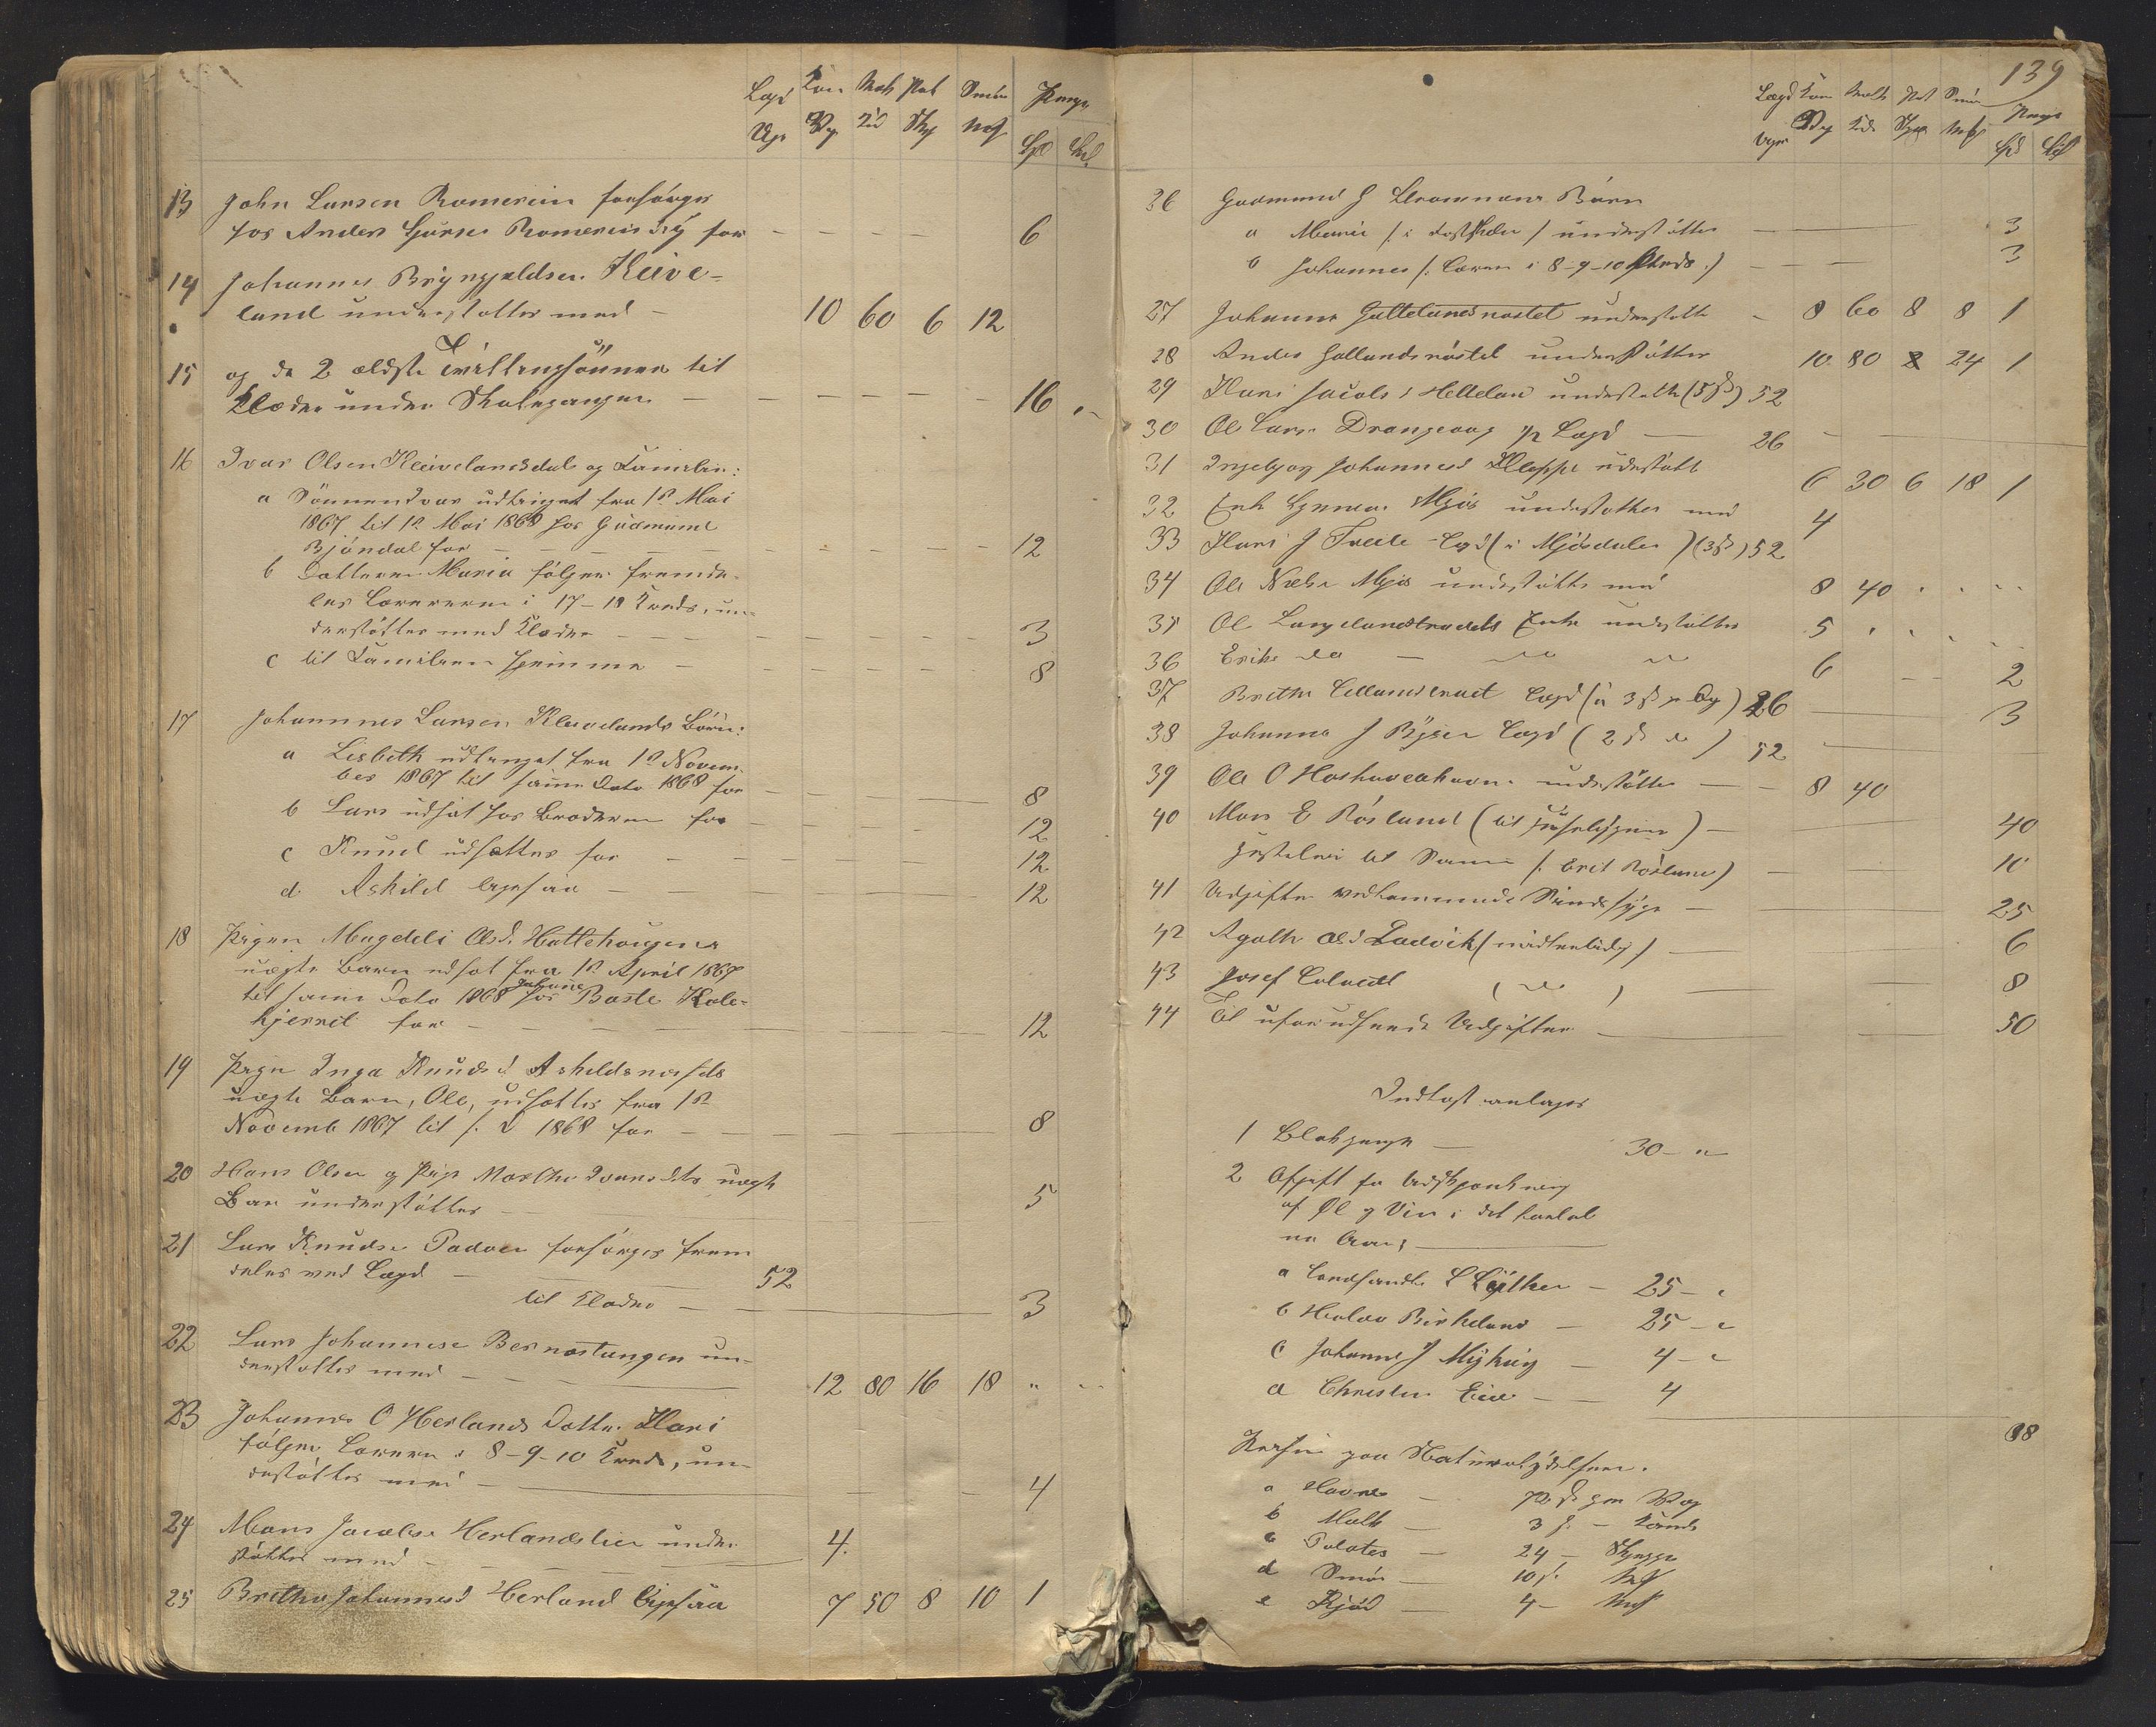 Lægd Korn Malt Pot Smør Penge
Uger Vog Kd Skp Mrk Spd Skl
13 John Larsen Romereim forsørges
hos Anders Romereim for - - - - 6
14 Johannes Brÿngjeldsen Kleive-
land understøttes med - 10 60 6 12
15 og de 2 ældste Tvillingsønner til
Klæder under Skolegangen - - - - - 16 " -
16 Ivar Olsen Kleivelandsdal og Familie:
a Sønnen Ivar udtinget fra 1ste Mai
1867 til 1ste Mai 1868 hos Gudmund
Bjøndal for - - - - 12
b Datteren Maria følger fremde-
les Læreren i 17-18 Kreds, un-
derstøttes med Klæder - - - - 3
c til Familien hjemme - - - - 8
17 Johannes Larsen Kleivelands Børn:
a Lisbeth udtinget fra 1ste Novem-
ber 1867 til samme Dato 1868 for - - - 8
b Lars udsat hos Broderen for - - - 12
c Knud udsættes for - - - - 12
d Askild ligesaa - - - - 12
18 Pigen Magdeli Olsd. Hattehougens
uægte Barn udsat fra 1ste April 1867
til samme Dato 1868 hos Johanne Baste Kole-
kjerret for - - - - 12
19 Pigen Inga Knudsd Askeldsnæsets
uægte Barn, Ole, udsættes fra 1ste
Novemb 1867 til s. D 1868 for - - - 8
20 Hans Olsen og Pige Marthe Ivarsdtrs uægte
Barn understøttes - - - 5
21 Lars Knudsen Padøen forsørges frem
deles ved Lægd - - - 52
til Klæder - - - 3
22 Lars Johannesen Bernæstangen un-
derstøttes med - - - 12 80 16 18 " "
23 Johannes O Herlands Datter Kari
følger Læreren i 8-9-10 Kreds, un-
derstøttes med - - - 4
24 Mons Jacobsen Herlandslien under
støttes med - - - 4.
25 Brithe Johannesd Herland ligesaa 7 50 8 10 1
139
Lægd Korn Malt Pot Smør Penge
Uger Vog Kd Skp Mrk Spd Skl
26 Gudmund J Børn
a Marie understøttes - 3
b Johannes (: Læreren i 8-9-10 Kreds :) - - 3
27 Johannes Galtelandsnøstet understøttes - 8 60 8 8 1
28 Anders Hollandsnøstet understøttes 10 80 8 24 1
29 Kari Jacobs: Helleland understøttes (5ß) 52
30 Ole Larsen Drangevaag 1/2 Lægd - 26 -
31 Ingeborg Johannesd Kleppe understøttes 6 30 6 18 1
32 Enke Mjøs understøttes med 4
33 Kari J Tveite Lægd (i Mjøsdalen) (3ß) 52
34 Ole Nielsen Mjøs understøttes med 8 40 " " "
35 Ole Langelandstrædets Enke understøttes 5 " " "
36 Eriks do - do do 6 - - 2
37 Brithe Lellandsvaet Lægd (à 3ß pr Dg) 26 - 3
38 Johannes J Røsen Lægd (2 ß do) 52 -
39 Ole O Haukaneshavn understøttes - - 8 40
40 Mons E Røsland (til Huuseleje) - 40
til Samme (: Erik Røsland) - - 10
41 Udgifter vedkommende Sindssÿge - 25
42 Agathe Olsd Ladvik - 6
43 Josef Lolvedt (do) - 8
44 Til uforudseede Udgifter - 50
Indtægt anlages
1 - 30 - "
2 Afgift for Udskjænkning
af Øl og Vin i det forløb-
ne Aar,
a Landhandler - 25 - "
b Haldor Birkeland - 25 - "
c Johannes J Mÿking - 4 - "
d Christen Eide - 4
88
Priser paa Naturalÿdelsene.
a Havre - 72 ß per Vog
b Malt - 3 ß. - Kande
c Potates - 24 - Skjeppe
d Smør - 10 ß. Mrk
e Kjød - 4 - Mrk